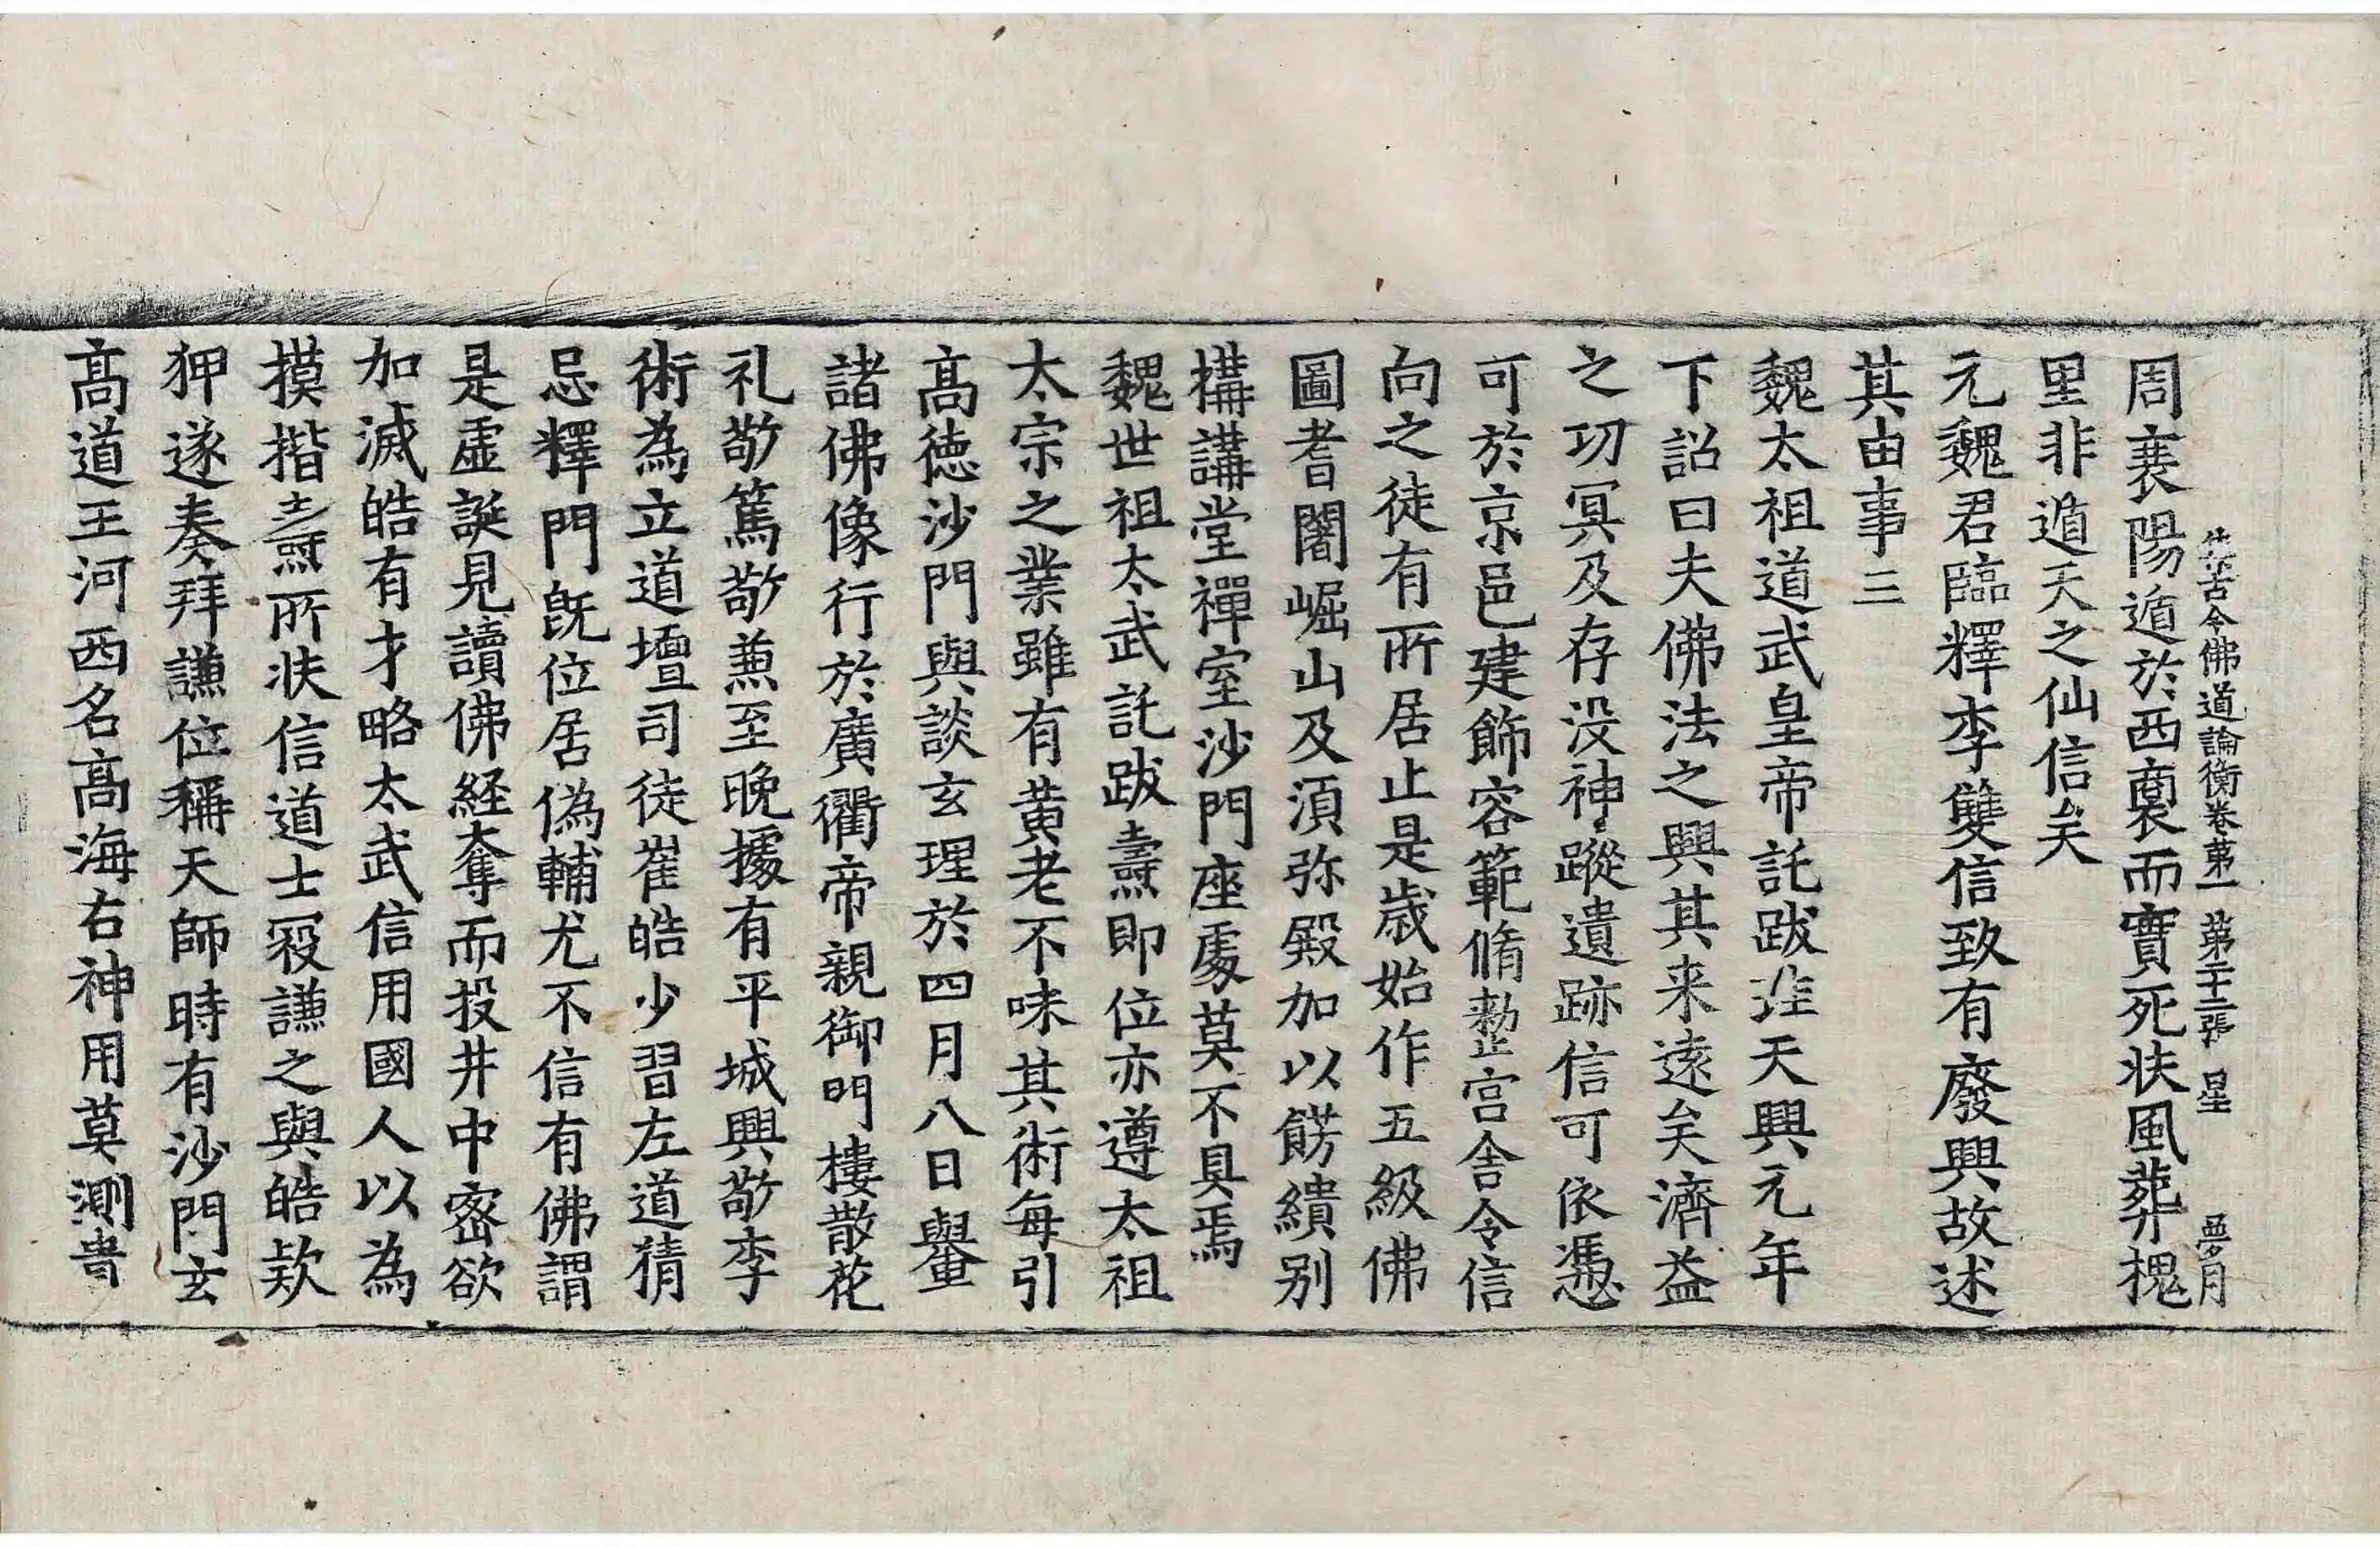 集古今佛道論衡卷第一 第十二張 星
周襄陽遁於西裔而實死扶風葬槐
里非遁天之仙信矣
元魏君臨釋李雙信致有廢興故述
其由事三
魏太祖道武皇帝託跋珪天興元年
下詔曰夫佛法之興其来遠矣濟益
之功冥及存没神蹤遺跡信可依憑
可於京邑建飾容範脩整宫舍令信
向之徒有所居止是歳始作五級佛
圖耆闍崛山及湏弥殿加以餝繢别
構講堂禪室沙門座處莫不具焉
魏世祖太武託跋燾即位亦遵太祖
太宗之業雖有黄老不味其術每引
髙徳沙門與談玄理於四月八日轝
諸佛像行於廣衢帝親御門樓散花
礼敬篤敬兼至晚據有平城興敬李
術為立道壇司徒崔皓少習左道猜
忌釋門旣位居偽輔尤不信有佛謂
是虚誕見讀佛経奪而投井中宻欲
加滅皓有才略太武信用國人以為
摸揩燾所扶信道士宼謙之與皓欵
狎遂奏拜謙位稱天師時有沙門玄
髙道王河西名髙海右神用莫測貴